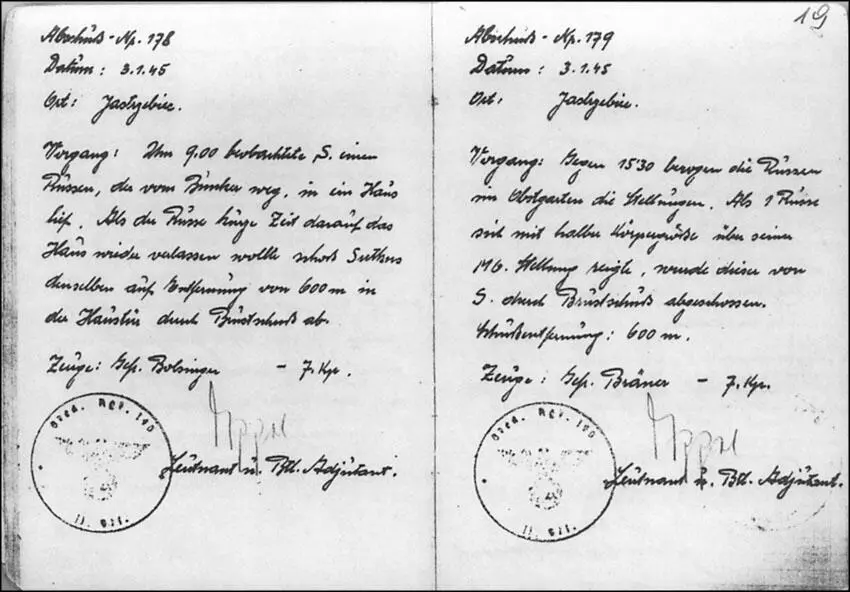 Abschuß-Nr. 178
Datum: 3.1.45
Ort: Jastrzebiec.
Vorgang: Um 9.00 beobachtete S. einen
Russen, der vom Bunker weg, in ein Haus
lief. Als der Russe kurze Zeit darauf das
Haus wieder verlassen wollte schoß Sutkus
denselben auf Entfernung von 600 m in
der Haustür durch Brustschuß ab.
Zeuge: Gefr. Bolsinger - 7. Kp.
Leutnant u. Btl. Adjutant.
Gren. Rgt. 190
19
Abschuß-Nr. 179
Datum: 3.1.45
Ort: Jastrzebiec.
Vorgang: Gegen 15.30 bezogen die Russen
im Obstgarten die Stellungen. Als 1 Russe
sich mit halber Körpergröße über seiner
MG. Stellung zeigte, wurde dieser von
S. durch Brustschuß abgeschossen.
Schußentfernung: 600 m.
Zeuge: Gefr. Bräuer - 7. Kp.
Leutnant u. Btl. Adjutant.
Gren. Rgt. 190